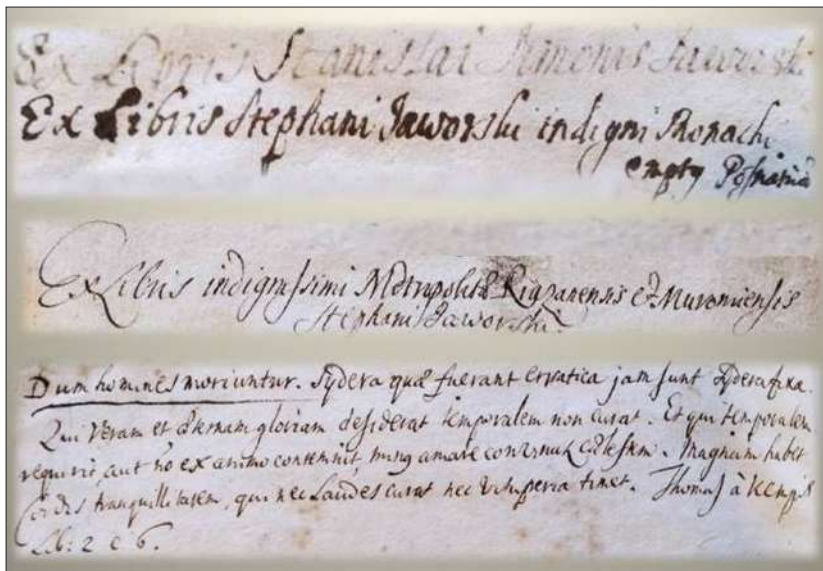 Ex Libris Stanislai Simonis Jaworski
Ex Libris Stephani Jaworski indigni Monachi
empty Posnaniæ
Ex Libris indignissimi Metropolitæ Riazanensis et Muromiensis
Stephani Jaworski.
Dum homines moriuntur. Sydera quæ fuerant erratica jam sunt sydera fixa.
Qui veram et æternam gloriam desiderat temporalem non curat. Et qui temporalem
requirit, aut nō ex animo contemnit, minq amare convincit cælestem. Magnam habet
cordis tranquillitatem, qui nec Laudes curat nec vituperia timet. Thomas à Kempis
Lib: 2 c 6.